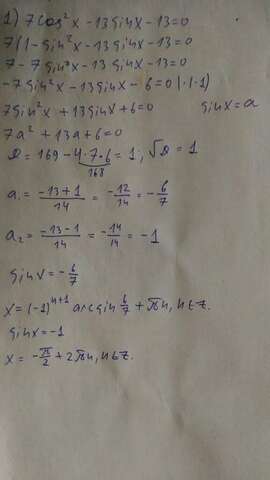 1) 7cos²x - 13sinx - 13 = 0
7(1 - sin²x - 13sinx - 13 = 0
7 - 7sin²x - 13sinx - 13 = 0
-7sin²x - 13sinx - 6 = 0 | (-1)
7sin²x + 13sinx + 6 = 0 sinx = a
7a² + 13a + 6 = 0
D = 169 - 4·7·6 = 1; √D = 1
168
a₁ = (-13+1)/14 = -12/14 = -6/7
a₂ = (-13-1)/14 = -14/14 = -1
sinx = -6/7
x = (-1)ⁿ⁺¹ arcsin 6/7 + πn, n ∈ Z.
sinx = -1
x = -π/2 + 2πn, n ∈ Z.